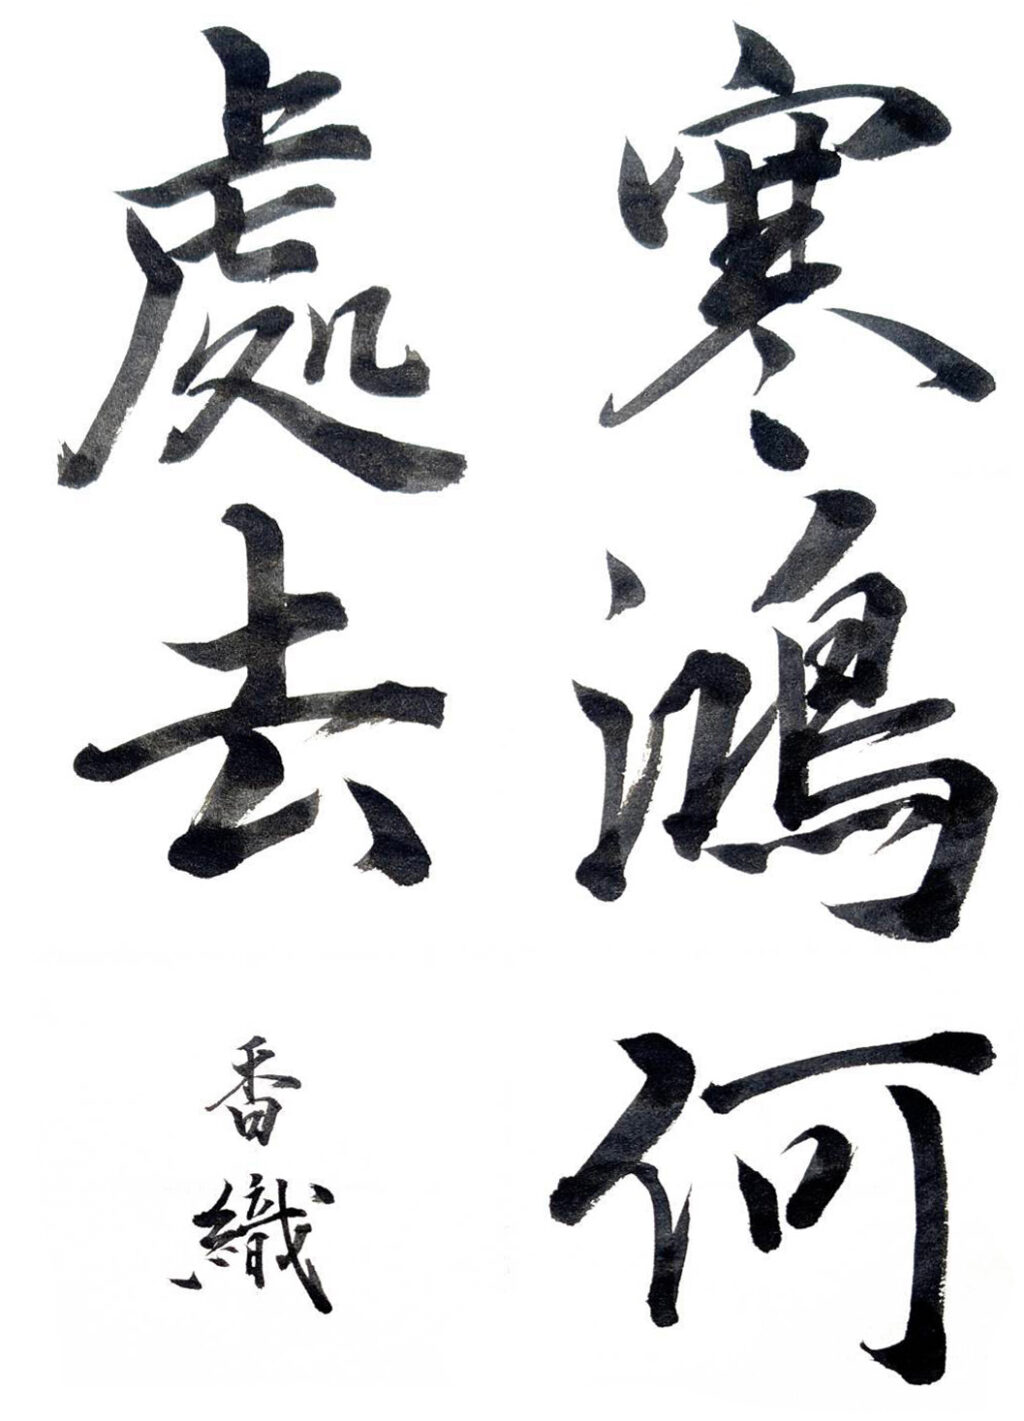 寒鴻何
處去
香織